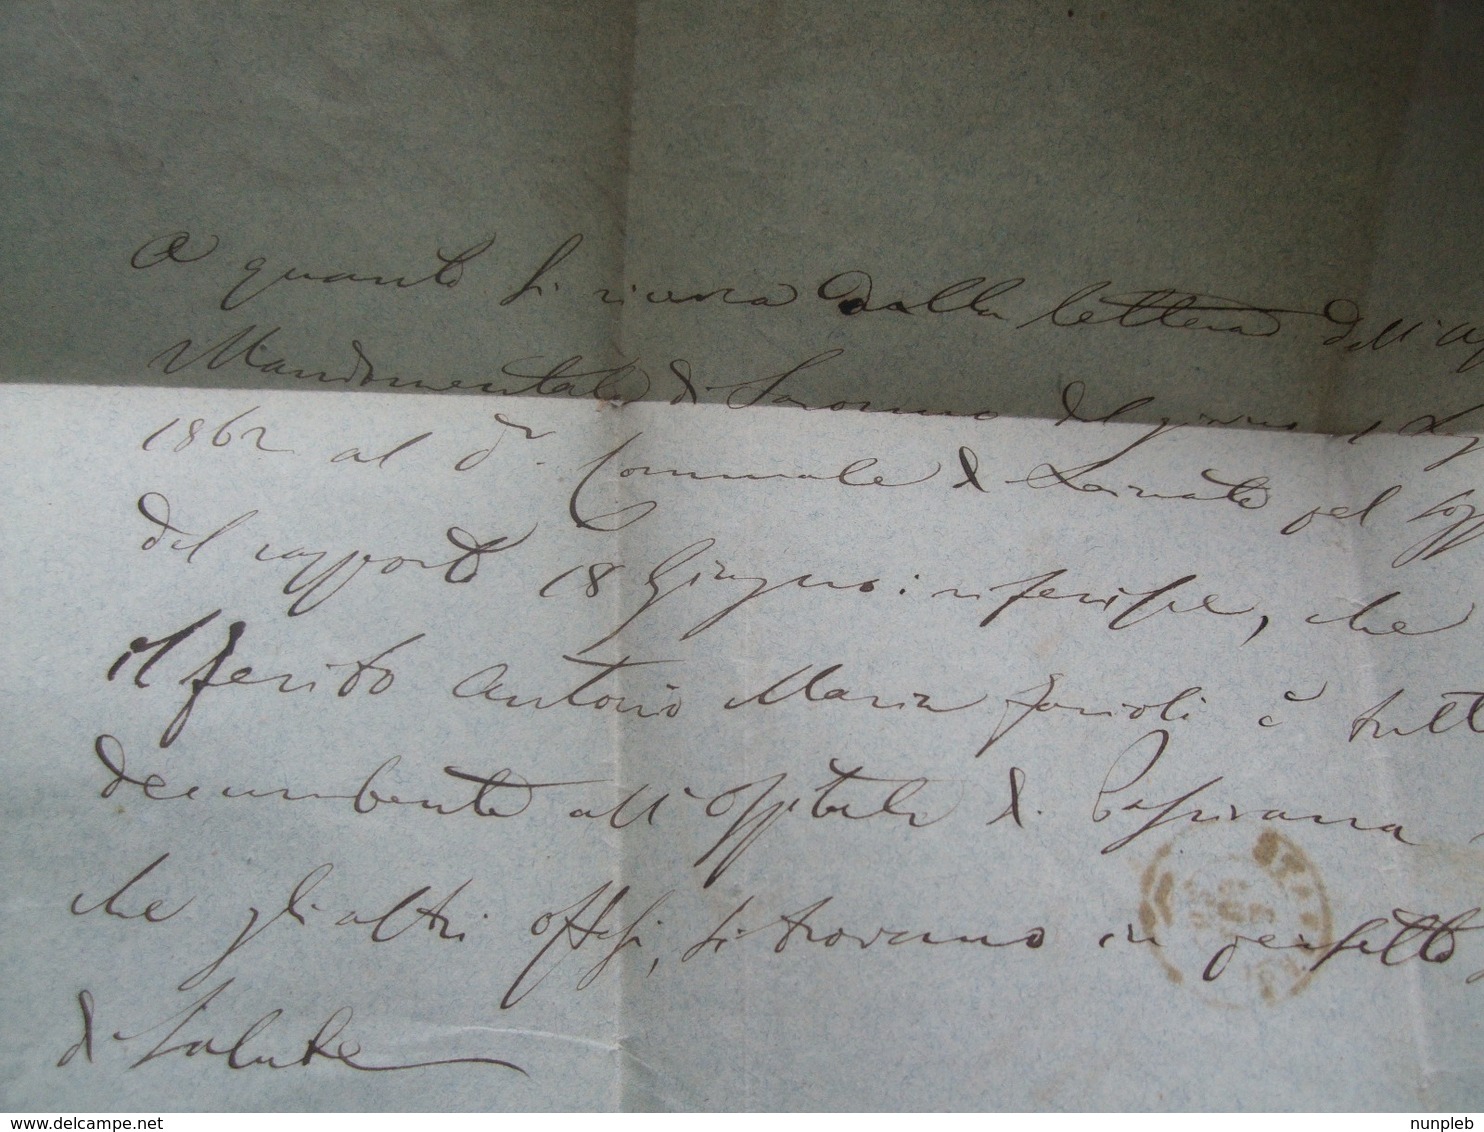 A quanto si ricava dalla lettera dell'
Mandamentale di Saronno del giorno
1862 al Dr. Comunale di Lainate pel
del rapporto 18 Giugno: riferisce, che
il ferito Antonio Maria Farioli è tutt
decumbente all'Ospitale di Passirana
che gli altri offesi, si trovano in perfetto
di Salute
www.delcampe.net
nunpleb